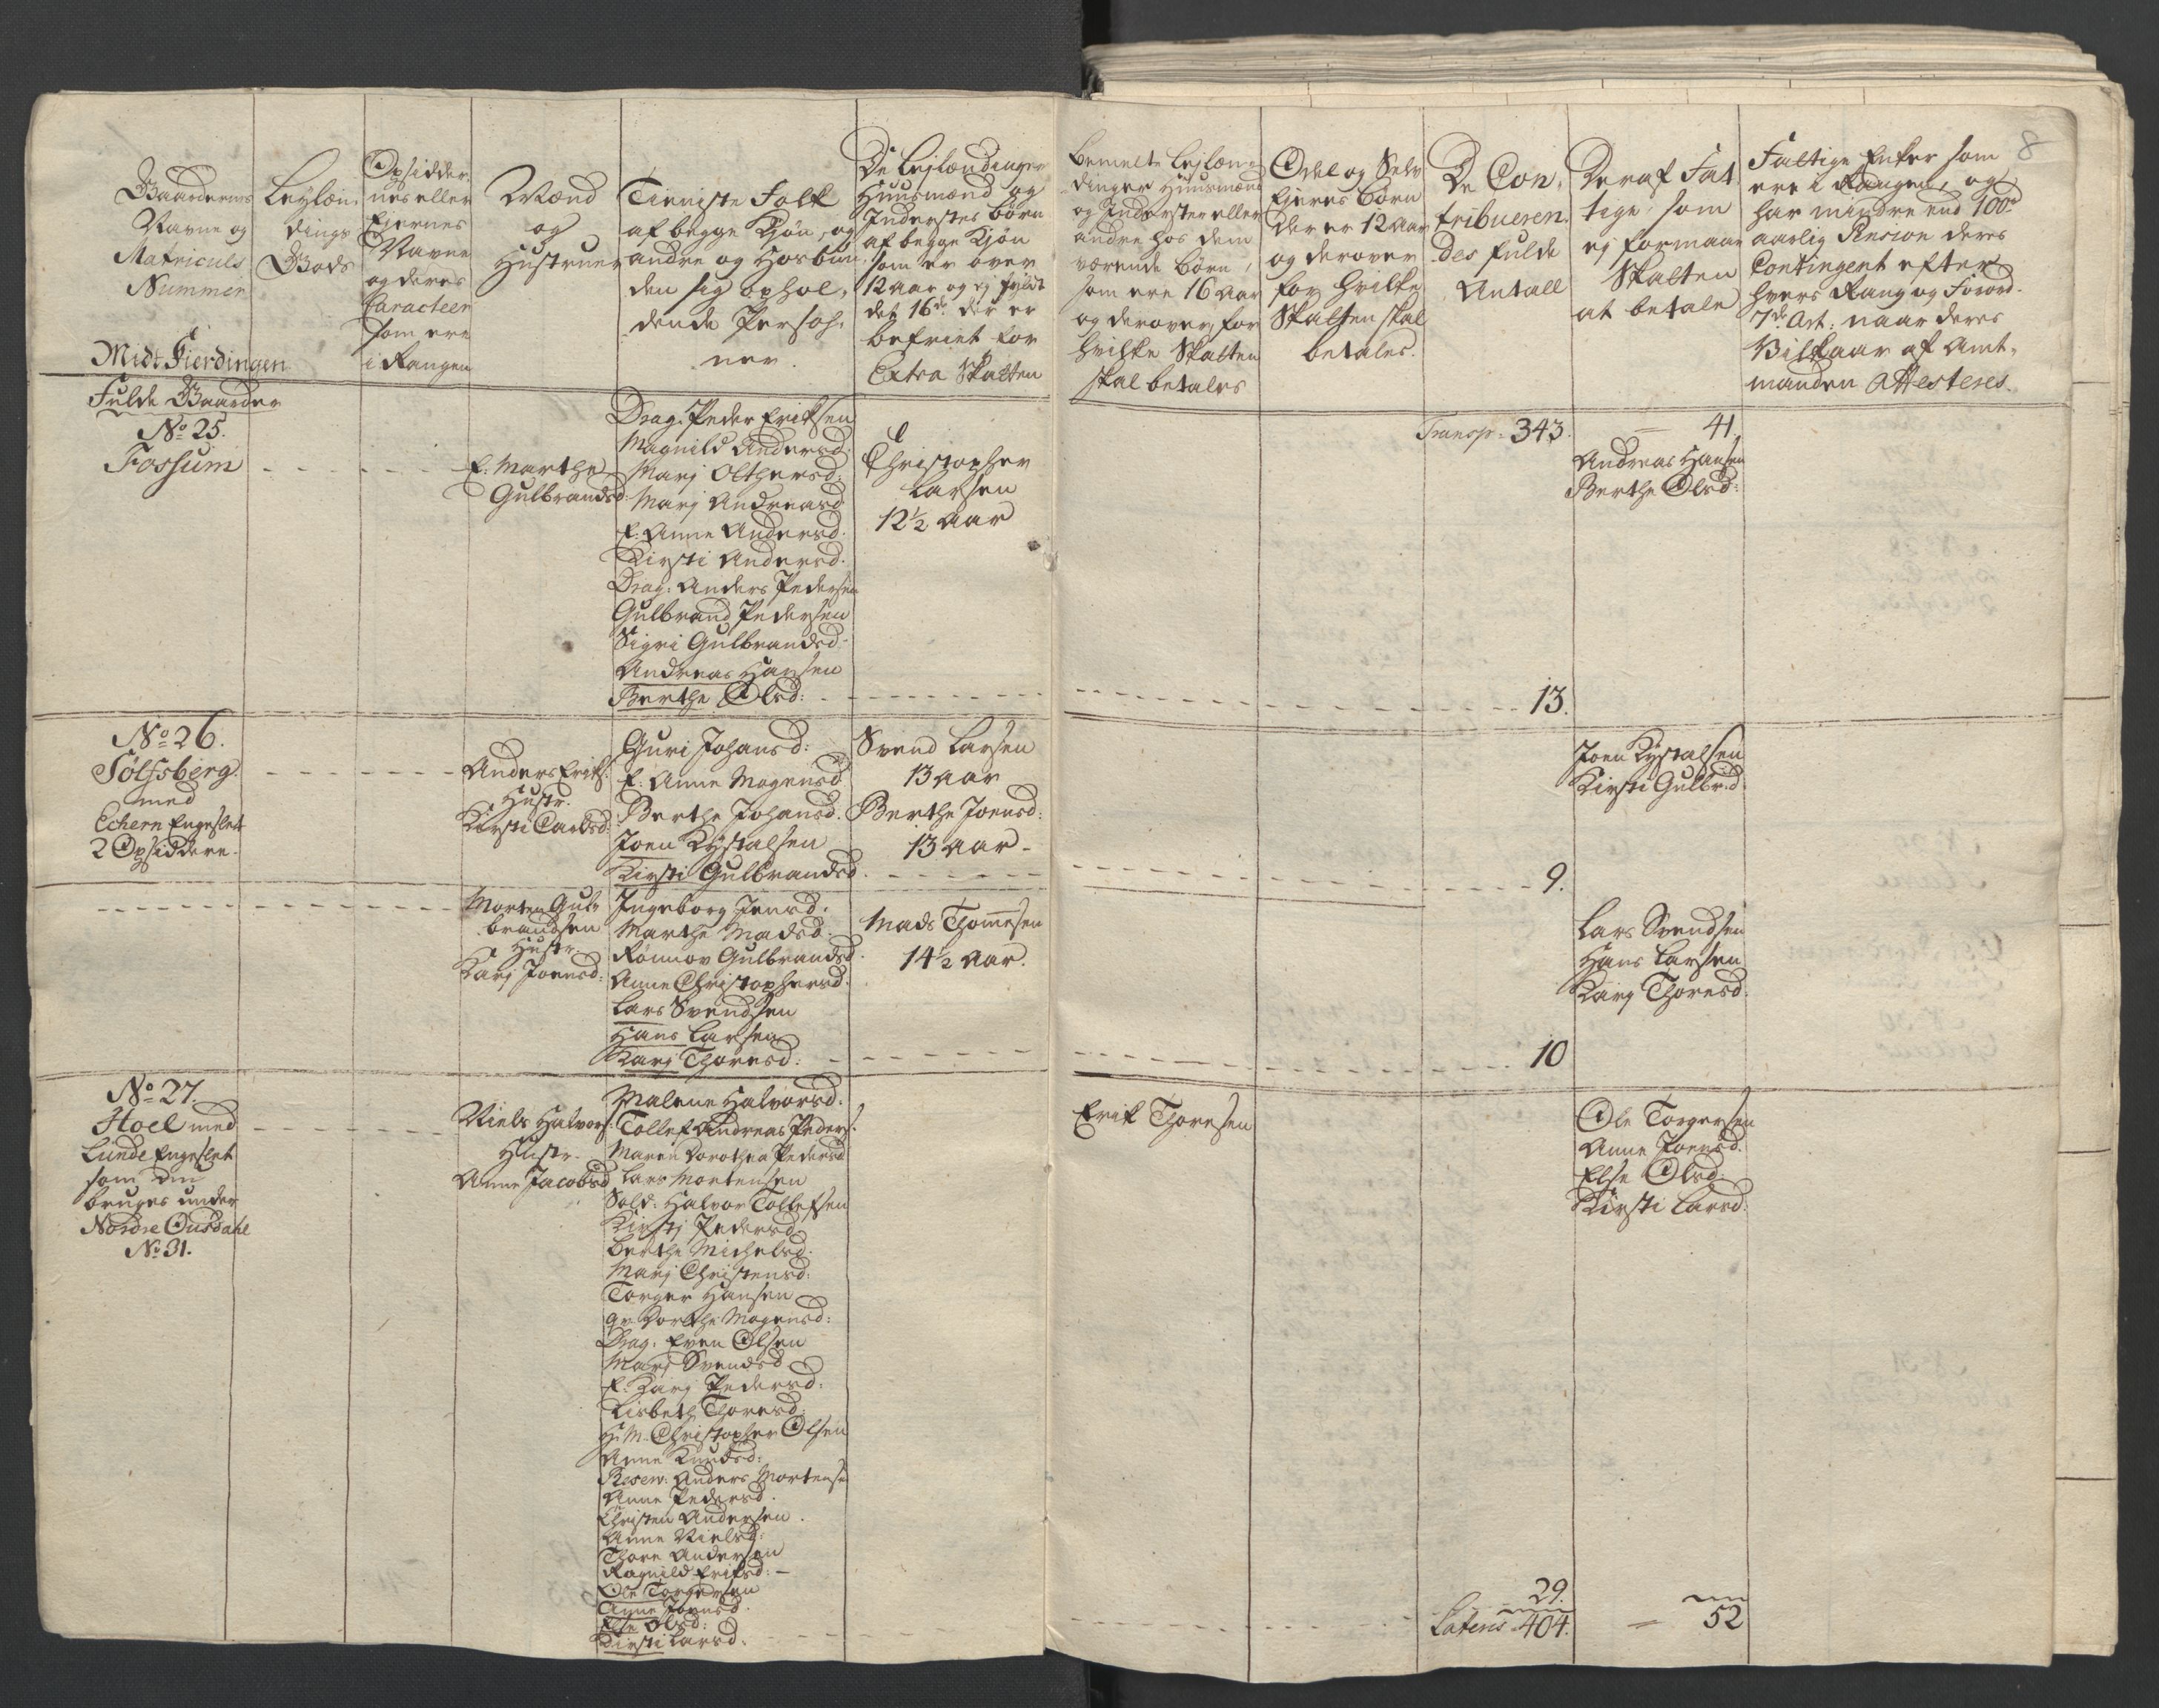 8
Baardernes
Navne og
Matriculs
Nummer
Midt Fierdingen
Leylæn-
dings
Bods
Opsidder-
nes eller
Ejernes
Navne
og deres
Caracteer
som ere
i Rangen
Mænd
og
Hustruer
Tieniste Folk
af begge Kjøn, og
andre og Hosbun-
den sig ophol-
dende Persoh-
ner.
De Lejlændinger
Huusmænd og
Inderstes børn
af begge Kjøn
som er over
12 aar og ej fyldt
det 16de der er
befriet for
Extra Skatten
bemelte Lejlæn-
dinger Huusmænd
og Inderster eller
andre hos dem
værende børn,
som ere 16 aar
og derover, for
hvilke Skatten
skal betales
Odel og Selv
Ejeres børn
der er 12 aar
og derover
for hvilke
Skatten skal
betales.
De Con-
tribueren-
des fulde
Antall
Deraf Fat-
tige som
ej formaar
Skatten
at betale
Fattige Enker som
ere i Rangen, og
har mindre end 100rd
aarlig Pension deres
Contingent efter
hvers Rang og Forord.
7de Art: naar deres
Vilkaar af Amt-
manden Attesteres.
Fulde Gaarder
No 25.
Fossum
E. Marthe
Gulbrandsd:
Drag: Peder Eriksen
Magnild Andersd:
Marj Olthersd:
Marj Andreasd
E. Anne Andersd.
Kirsti Andersd.
Drag: Anders Pedersen
Gulbrand Pedersen
Sigri Gulbrandsd:
Andreas Hansen
Berthe Olsd:
Christopher
Larsen
12½ aar
Transp: 343.
41.
Andreas Hansen
Berthe Olsd:
13.
No 26.
Sølfsberg
med
Echern Engeslet
2 Opsiddere.
Anders Eriks:
Hustr:
Kirsti Carlsd:
Guri Johansd:
E. Anne Mogensd
Berthe Johansd.
Joen Kystalsen
Kirsti Gulbrandsd.
Svend Larsen
13 aar
Berthe Joensd:
13 aar
Joen Kystalsen
Kirsti Gulbr:d.
9.
Morten Gul-
brandsen
Hustr:
Karj Joensd:
Ingeborg Jensd:
Marthe Madsd:
Rønnov Gulbrandsd.
Anne Christophersd.
Lars Svendsen
Hans Larsen
Karj Thoresd:
Mads Thomesen
14½ aar.
Lars Svendsen
Hans Larsen
Karj Thoresd:
10
No 27.
Hoel med
Lunde Engeslet
som din
bruges under
Nordre Ousdahl
No 31.
Niels Halvors:
Hustr.
Anne Jacobsd
Malene Halvorsd:
Tollef Andreas Peders:
Maren Dorothea Pedersd
Lars Mortensen
Sold: Halvor Tollefsen
Kirstj Pedersd
Berthe Michelsd:
Marj Christensd:
Torger Hansen
qv. Dorthe Mogensd:
Drag: Even Olsen
Marj Svendsd
E. Karj Pedersd:
Lisbeth Thoresd:
H: M. Christopher Olsen
Anne Knudsd:
Reserv: Anders Mortensen
Anne Pedersd.
Christen Andersen.
Anne Nielsd:
Thore Andersen
Ragnild Eriksd:
Ole Torgersen
Anne Joensd.
Else Olsd:
Kirsti Larsd:
Erik Thoresen
Ole Torgersen
Anne Joensd.
Else Olsd
Kirsti Larsd:
29.
Lateris 404.
52